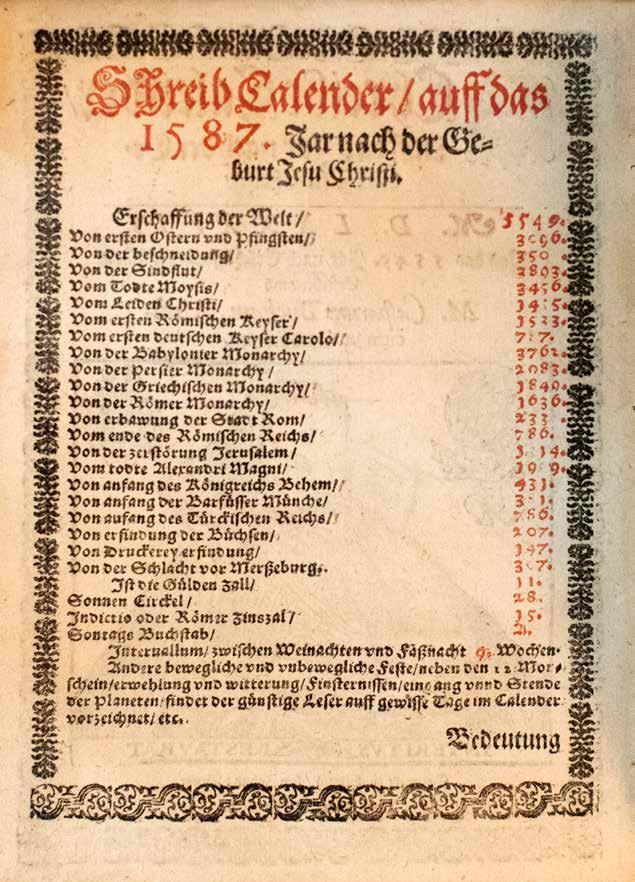 Schreib Calender/auff das
1587. Jar nach der Ge-
burt Jesu Christi.
Erschaffung der Welt/ 5549.
Von ersten Ostern vnd Pfingsten/ 3096.
Von der beschneidung/ 350
Von der Sindflut/ 3893.
Vom Todte Moysis/ 3456.
Vom Leiden Christi/
Vom ersten Römischen Keyser/
Vom ersten deutschen Keyser Carolo/ 787.
Von der Babylonier Monarchy/ 3762.
Von der Persier Monarchy/ 2083.
Von der Griechischen Monarchy/ 1849.
Von der Römer Monarchy/ 1636.
Von erbawung der Stadt Rom/ 233
Vom ende des Römischen Reichs/ 786.
Von der zerstörung Jerusalem/
Vom todte Alexandri Magni/ 1909.
Von anfang des Königreichs Behem/ 431.
Von anfang der Barfüsser Münche/
Von anfang des Türckischen Reichs/ 786.
Von erfindung der Büchsen/ 207.
Von Druckerey erfindung/ 147.
Von der Schlacht vor Merßeburg. 307.
Ist die Gülden zall/ 11.
Sonnen Circkel/ 28.
Indictio oder Römer Zinszal/ 15.
Sontags Buchstab/ A.
Interuallum/zwischen Weinachten vnd Fäßnacht 9. Wochen.
Andere bewegliche vnd vnbewegliche Feste/neben den 12 Mon-
schein/erwehlung vnd witterung/Finsternissen/eingang vnnd Stende
der Planeten/findet der günstige Leser auff gewisse Tage im Calender
vorzeichnet/etc.
Bedeutung